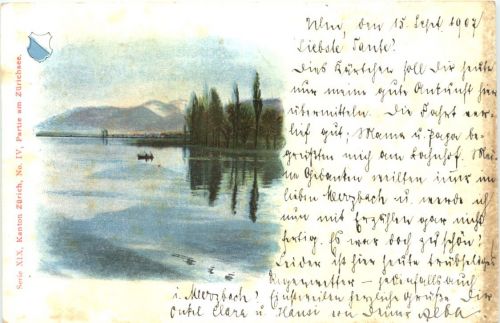 Serie XIX, Kanton Zürich, No. IV, Partie am Zürichsee.
Ulm, den 15 Sept 1907
Liebste Tante!
Dies Kärtchen soll Dir heute
nur meine gute Ankunft hier
übermitteln. Die Fahrt ver-
lief gut; Mama u. Papa be-
grüßten mich am Bahnhof. Mei-
ne Gedanken weilten immer im
lieben Merzbach u. werde ich
nun mit Erzählen gar nicht
fertig. Es war doch zu schön!
Leider ist hier heute trübseliges
Regenwetter – jedenfalls auch
i. Merzbach? Einstweilen herzliche Grüße Dir
Onkel Clara u. Hansi von Deiner Alba